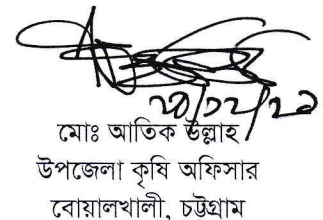 মোঃ আতিক উল্লাহ
উপজেলা কৃষি অফিসার
বোয়ালখালী, চট্টগ্রাম